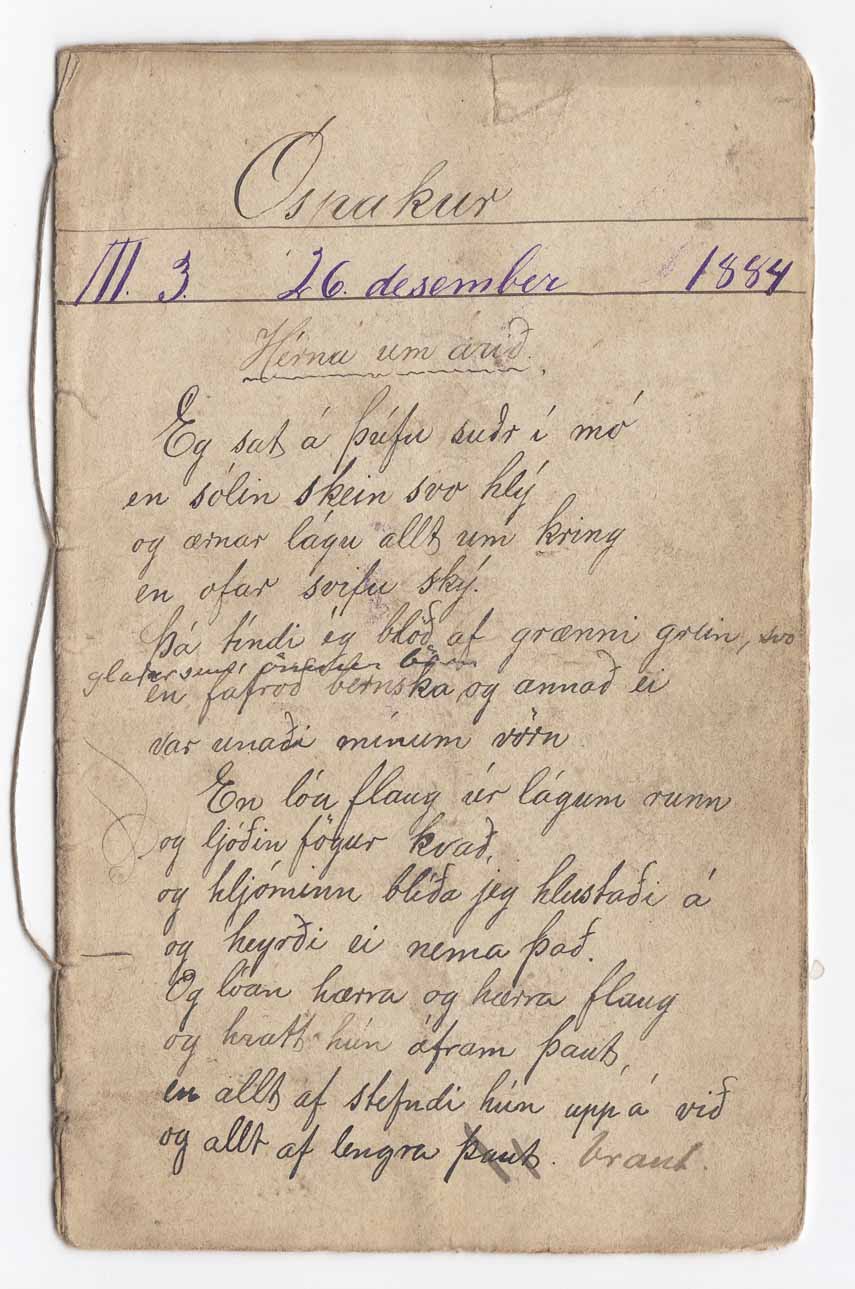 Óspakur
III. 3. 26. desember 1884
Hérna um árið.
Eg sat á þúfu suðr í mó
en sólin skein svo hlý
og ærnar lágu allt um kring
en ofar svifu ský.
Þá tíndi ég blöð af grænni grein, svo
glaður sem önnur börn
en fáfróð bernska, og annað ei
var unaði mínum vörn
En lóa flaug úr lágum runn
og ljóðin fögur kvað,
og hljóminn blíða jeg hlustaði á
og heyrði ei nema það.
Og lóan hærra og hærra flaug
og hratt hún áfram þaut,
en allt af stefndi hún upp á við
og allt af lengra þaut. braut.